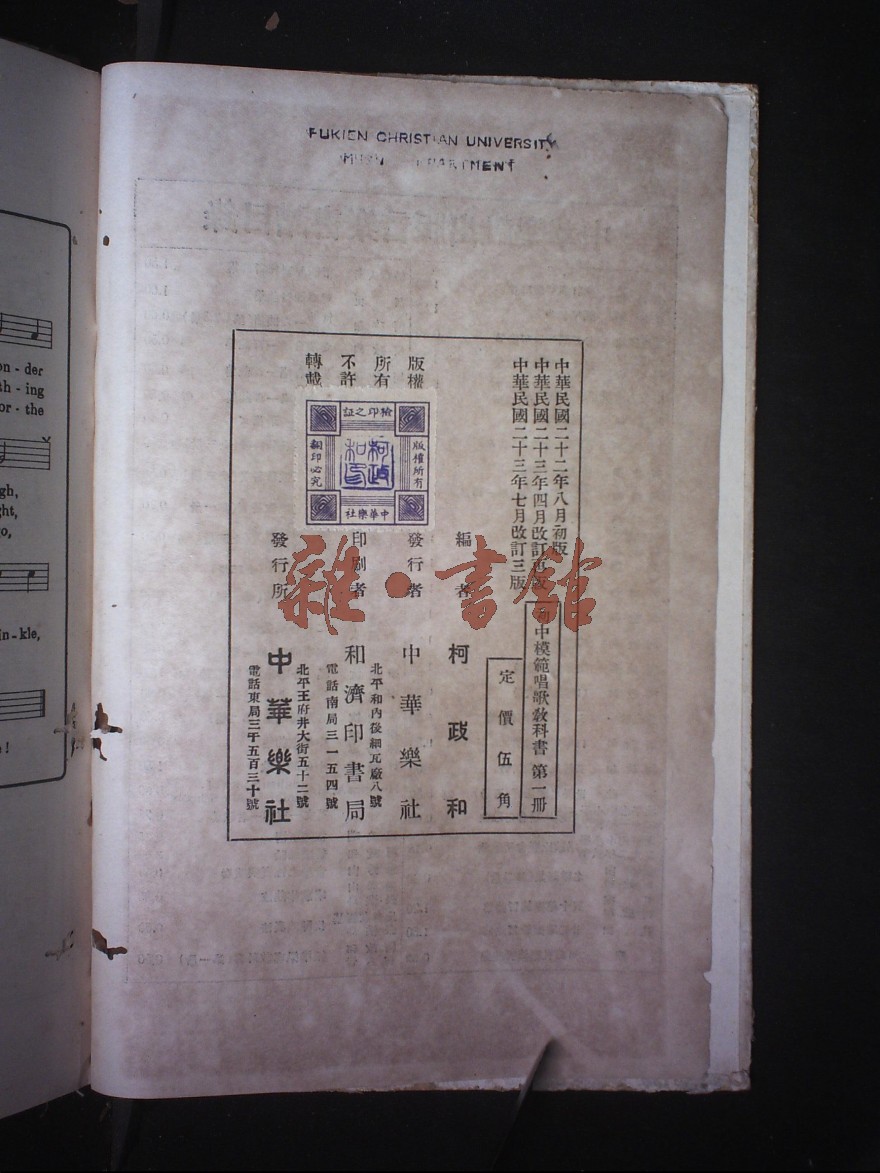 FUKIEN CHRISTIAN UNIVERSITY
MUSIC DEPARTMENT
中華民國二十二年八月初版
中華民國二十三年四月改訂再版
中華民國二十三年七月改訂三版
初中模範唱歌教科書 第一册
定價伍角
版權
所有
不許
轉載
檢印之証
版權所有
翻印必究
中華樂社
柯政
和印
編者 柯政和
發行者 中華樂社
北平和內後細瓦廠八號
印刷者 和濟印書局
電話南局三一五四號
北平王府井大街五十二號
發行所 中華樂社
電話東局三千五百三十號
雜·書館
on - der
th - ing
or - the
gh,
ght,
o,
in - kle,
e!